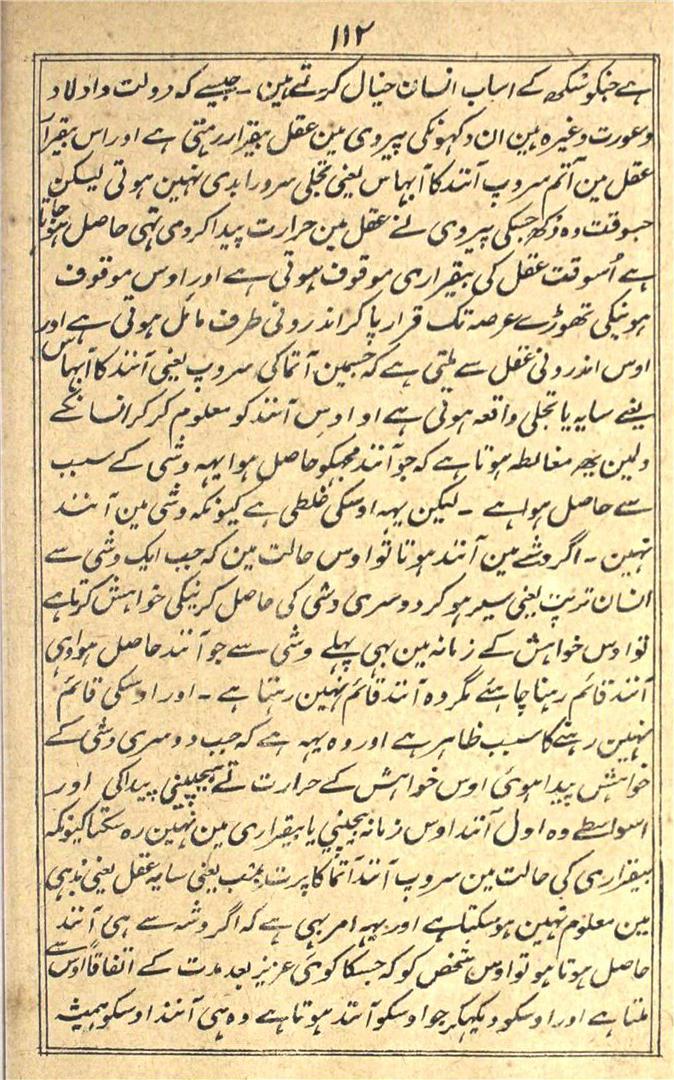 ۱۱۲
ہے جنکو سُکھ کے اسباب انسان خیال کرتے ہین ۔ جیسے کہ دولت و اولاد
و عورت وغیرہ ہین ان دکہونکی پیروی مین عقل بیقرار رہتی ہے اور اس بیقرار
عقل مین آتم سروپ آنند کا آبہاس یعنی تجلی سرور ابدی نہین ہوتی لیکن
جسوقت وہ دُکھ جسکی پیروی نے عقل مین حرارت پیدا کردی تہی حاصل ہوجاتا
ہے اُسوقت عقل کی بیقراری موقوف ہوتی ہے اور اوس موقوف
ہونیکی تھوڑے عرصہ تک قرار پاکر اندرونی طرف مائل ہوتی ہے اور
اوس اندرونی عقل سے ملتی ہے کہ جسمین آتما کی سروپ یعنی آنند کا آبہاس
یعنے سایہ یا تجلی واقعہ ہوتی ہے او اوس آنند کو معلوم کرکر انسانکے
دلمین یھ مغالطہ ہوتا ہے کہ جو آنند مجہکو حاصل ہوا یہہ وشی کے سبب
سے حاصل ہوا ہے ۔ لیکن یہہ اوسکی غلطی ہے کیونکہ وشی مین آنند
نہین ۔ اگر وشے مین آنند ہوتا تو اوس حالت مین کہ جب ایک وشی سے
انسان ترپت یعنی سیر ہوکر دوسری وشی کی حاصل کرنیکی خواہش کرتا ہے
تو اوس خواہش کے زمانہ مین بہی پہلے وشی سے جو آنند حاصل ہوا وہی
آنند قائم رہنا چاہئے مگر وہ آنند قائم نہین رہتا ہے ۔ اور اوسکی قائم
نہین رہنے کا سبب ظاہر ہے اور وہ یہہ ہے کہ جب دوسری وشی کے
خواہش پیدا ہوئی اوس خواہش کے حرارت نے بیچینی پیدا کی اور
اسواسطے وہ اول آنند اوس زمانہ بیچینی یا بیقراری مین نہین رہ سکتا کیونکہ
بیقراری کی حالت مین سروپ آنند آتما کا پرت بمب یعنی سایہ عقل یعنی بدہی
مین معلوم نہین ہوسکتا ہے اور یہہ امر بہی ہے کہ اگر وشہ سے ہی آنند
حاصل ہوتا ہو تو اوس شخص کو کہ جسکا کوئی عزیز بعد مدت کے اتفاقاً اوس سے
ملتا ہے اور اوسکو دیکہکر جو اوسکو آنند ہوتا ہے وہ ہی آنند اوسکو ہمیشہ